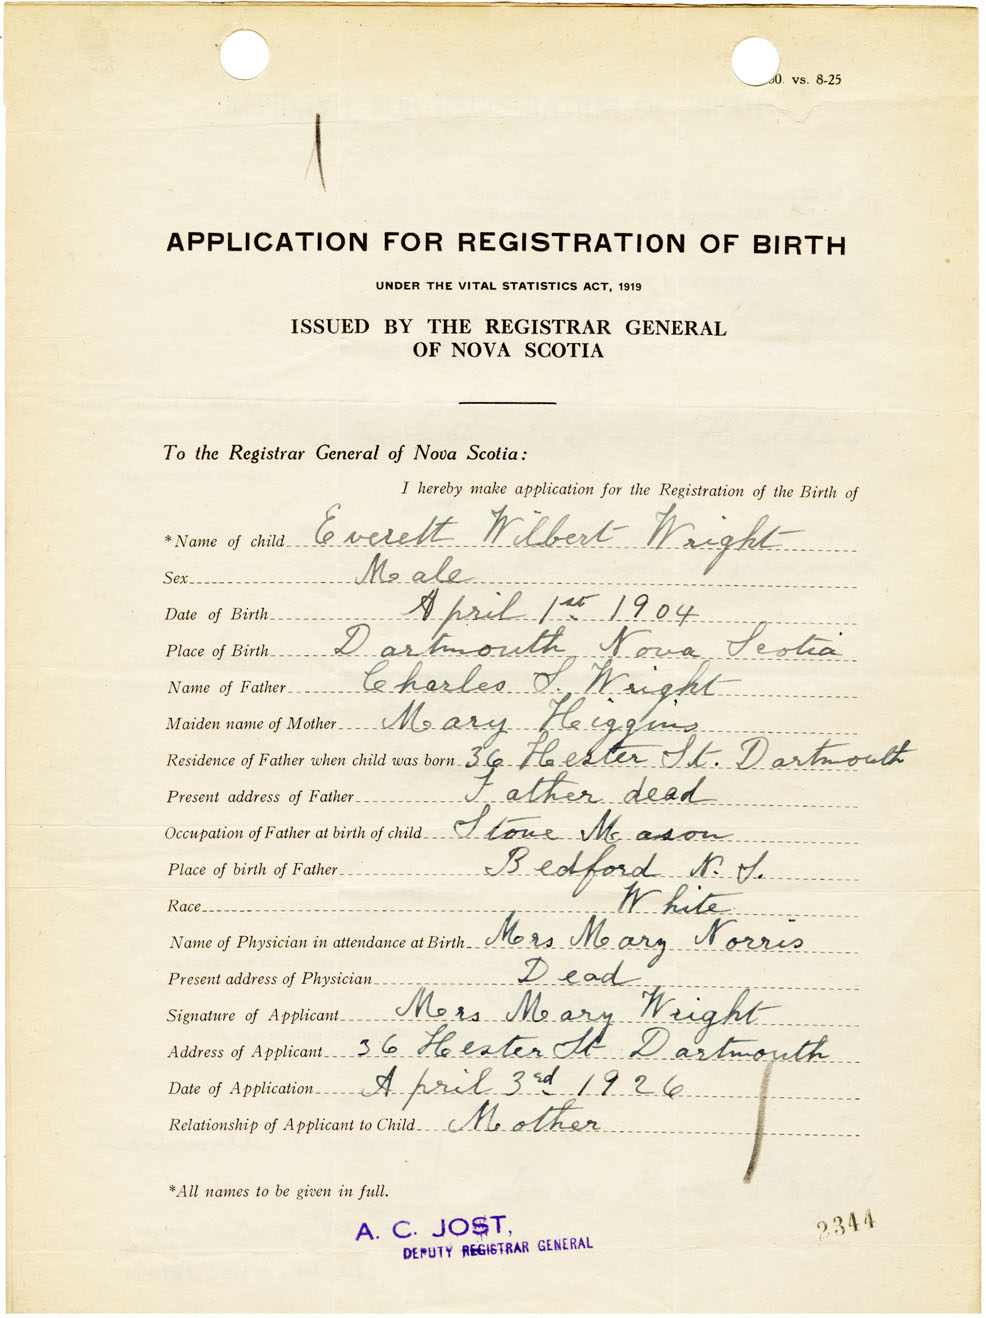 00. vs. 8-25
APPLICATION FOR REGISTRATION OF BIRTH
UNDER THE VITAL STATISTICS ACT, 1919
ISSUED BY THE REGISTRAR GENERAL
OF NOVA SCOTIA
To the Registrar General of Nova Scotia:
I hereby make application for the Registration of the Birth of
*Name of child Everett Wilbert Wright
Sex Male
Date of Birth April 1st 1904
Place of Birth Dartmouth Nova Scotia
Name of Father Charles S. Wright
Maiden name of Mother Mary Higgins
Residence of Father when child was born 36 Hester St. Dartmouth
Present address of Father Father dead
Occupation of Father at birth of child Stone Mason
Place of birth of Father Bedford N. S.
Race White
Name of Physician in attendance at Birth Mrs Mary Norris
Present address of Physician Dead
Signature of Applicant Mrs Mary Wright
Address of Applicant 36 Hester St Dartmouth
Date of Application April 3rd 1926
Relationship of Applicant to Child Mother
*All names to be given in full.
A. C. JOST,
DEPUTY REGISTRAR GENERAL
2344